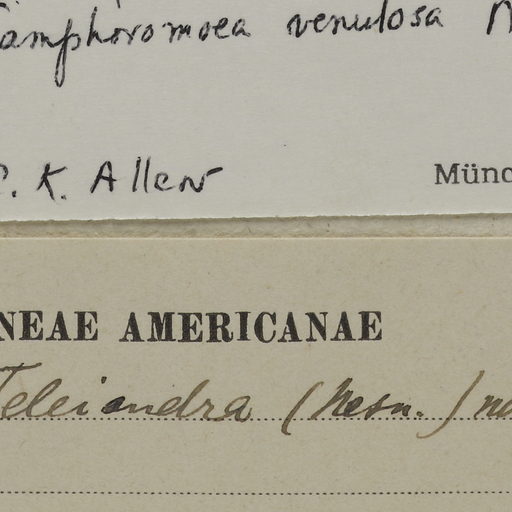 Camphoromoea venulosa N
C. K. Allen
Münc
NEAE AMERICANAE
Teleiandra (Mesn.) na